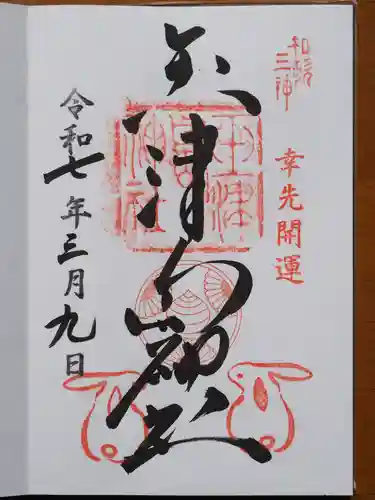 和歌三神
幸先開運
津
玉津島神社
令和七年三月九日